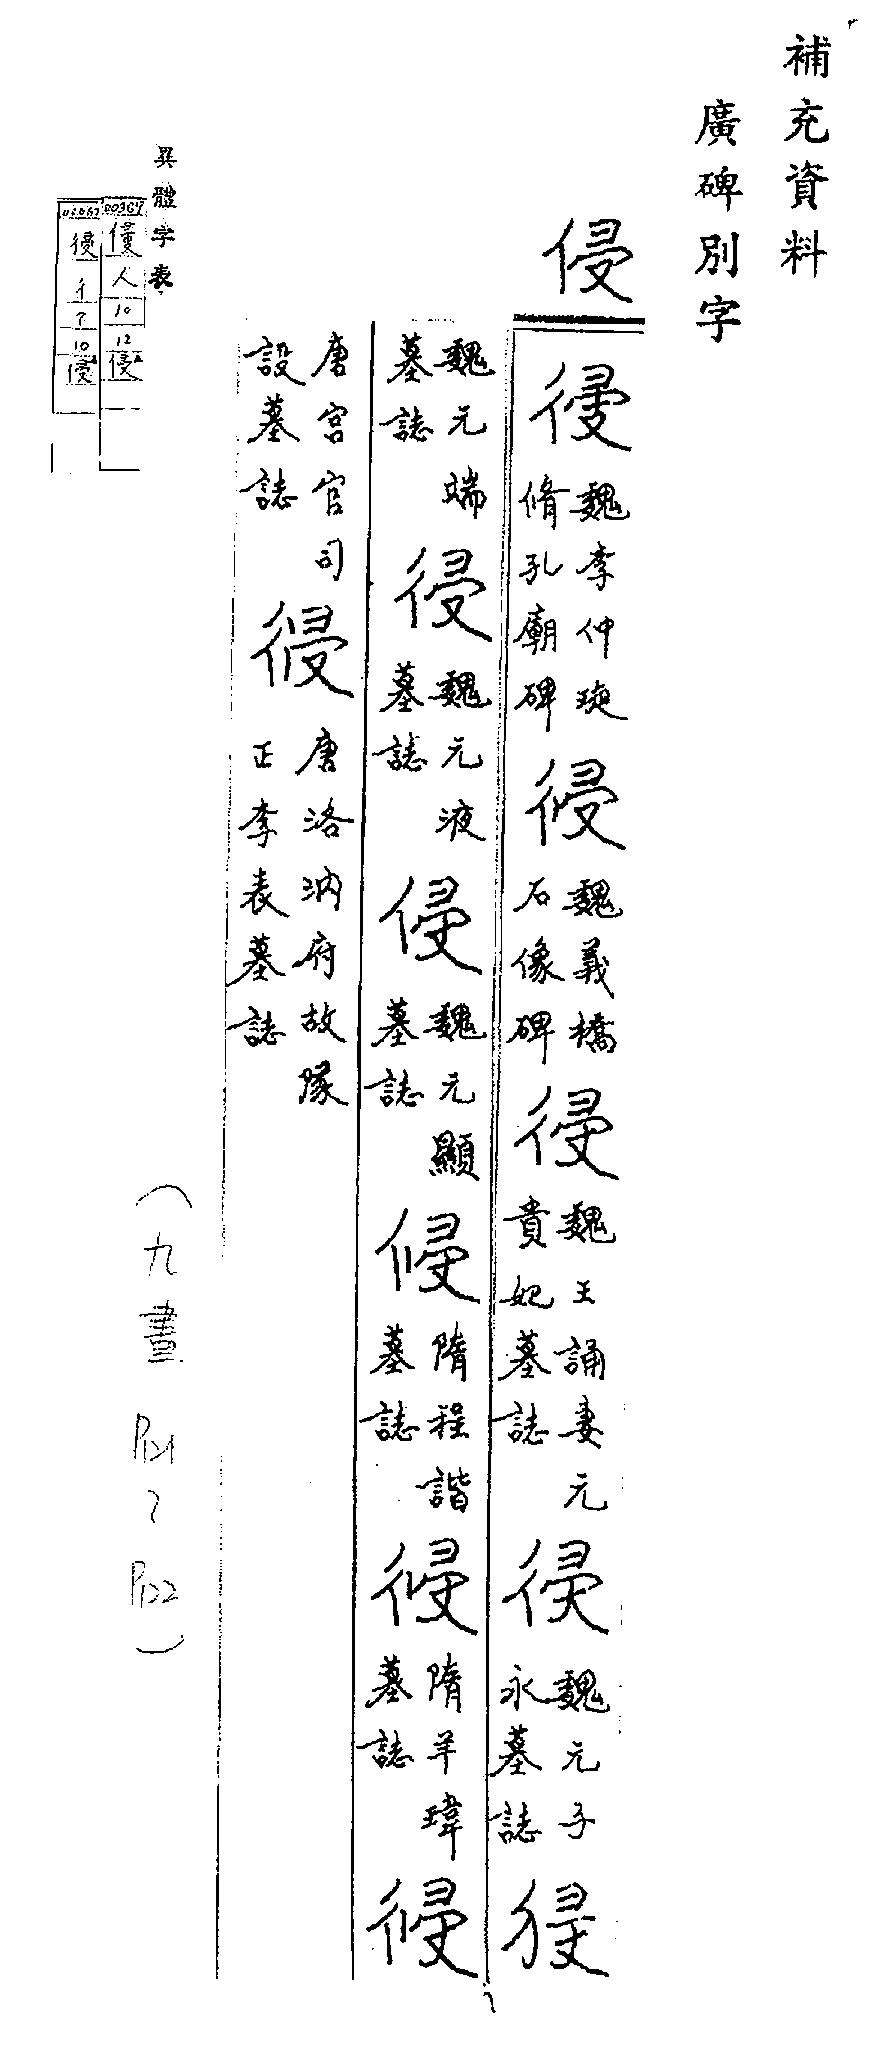 補充資料
廣碑別字
侵
侵 魏李仲璇脩孔廟碑 侵 魏義橋石像碑 侵 魏王誦妻元貴妃墓誌 侵 魏元子永墓誌 侵
魏元端墓誌 侵 魏元液墓誌 侵 魏元顯墓誌 侵 隋程諧墓誌 侵 隋羊瑋墓誌 侵
唐宮官司設墓誌 侵 唐洛汭府故隊正李表墓誌
(九畫 P121~P122)
異體字表
人 10 12 侵
彳 7 10 侵